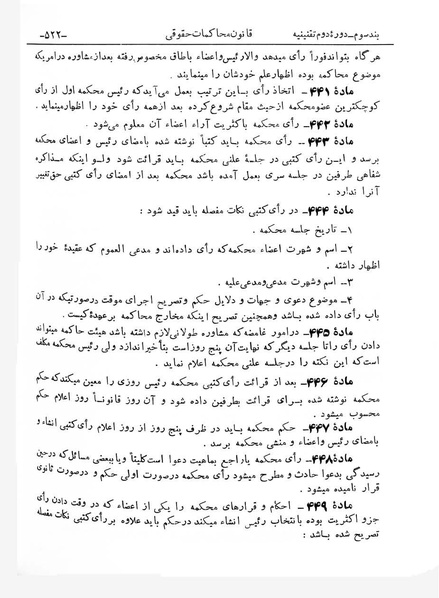 بند سوم ـ دورۀ دوم تقنینیه قانون محاکمات حقوقی ـ۵۲۲ـ
هر گاه بتواند فوراً رأی میدهد والا رئیس و اعضاء باطاق مخصوص رفته بعد از مشاوره در امریکه
موضوع محاکمه بوده اظهار علم خودشان را مینمایند .
مادۀ ۴۴۱ ـ اتخاذ رأی باین ترتیب بعمل می‌آید که رئیس محکمه اول از رأی
کوچکترین عضو محکمه از حیث مقام شروع کرده بعد از همه رأی خود را اظهار مینماید .
مادۀ ۴۴۲ ـ رأی محکمه باکثریت آراء اعضاء آن معلوم می‌شود .
مادۀ ۴۴۳ ـ رأی محکمه باید کتباً نوشته شده بامضای رئیس و اعضای محکمه
برسد و این رأی کتبی در جلسۀ علنی محکمه باید قرائت شود ولو اینکه مذاکره
شفاهی طرفین در جلسه سری بعمل آمده باشد محکمه بعد از امضای رأی کتبی حق تغییر
آنرا ندارد .
مادۀ ۴۴۴ ـ در رأی کتبی نکات مفصله باید قید شود :
۱ـ تاریخ جلسه محکمه .
۲ـ اسم و شهرت اعضاء محکمه که رأی داده‌اند و مدعی العموم که عقیدۀ خود را
اظهار داشته .
۳ـ اسم و شهرت مدعی و مدعی علیه .
۴ـ موضوع دعوی و جهات و دلایل حکم و تصریح اجرای موقت در صورتیکه در آن
باب رأی داده شده باشد و همچنین تصریح اینکه مخارج محاکمه بر عهدۀ کیست .
مادۀ ۴۴۵ ـ در امور غامضه که مشاوره طولانی لازم داشته باشد هیئت حاکمه میتواند
دادن رأی را تا جلسه دیگر که نهایت آن پنج روز است بتأخیر اندازد ولی رئیس محکمه مکلف
است که این نکته را در جلسه علنی محکمه اعلام نماید .
مادۀ ۴۴۶ ـ بعد از قرائت رأی کتبی محکمه رئیس روزی را معین میکند که حکم
محکمه نوشته شده برای قرائت بطرفین داده شود و آن روز قانوناً روز اعلام حکم
محسوب میشود .
مادۀ ۴۴۷ ـ حکم محکمه باید در ظرف پنج روز از روز اعلام رأی کتبی انشاء و
بامضای رئیس و اعضاء و منشی محکمه برسد .
مادۀ ۴۴۸ ـ رأی محکمه یا راجع بماهیت دعوا است کلیتاً و یا ببعضی مسائل که در حین
رسیدگی بدعوا حادث و مطرح میشود رأی محکمه در صورت اولی حکم و در صورت ثانوی
قرار نامیده میشود .
مادۀ ۴۴۹ ـ احکام و قرارهای محکمه را یکی از اعضاء که در وقت دادن رأی
جزو اکثریت بوده بانتخاب رئیس انشاء میکند در حکم باید علاوه بر رأی کتبی نکات مفصله
تصریح شده باشد :